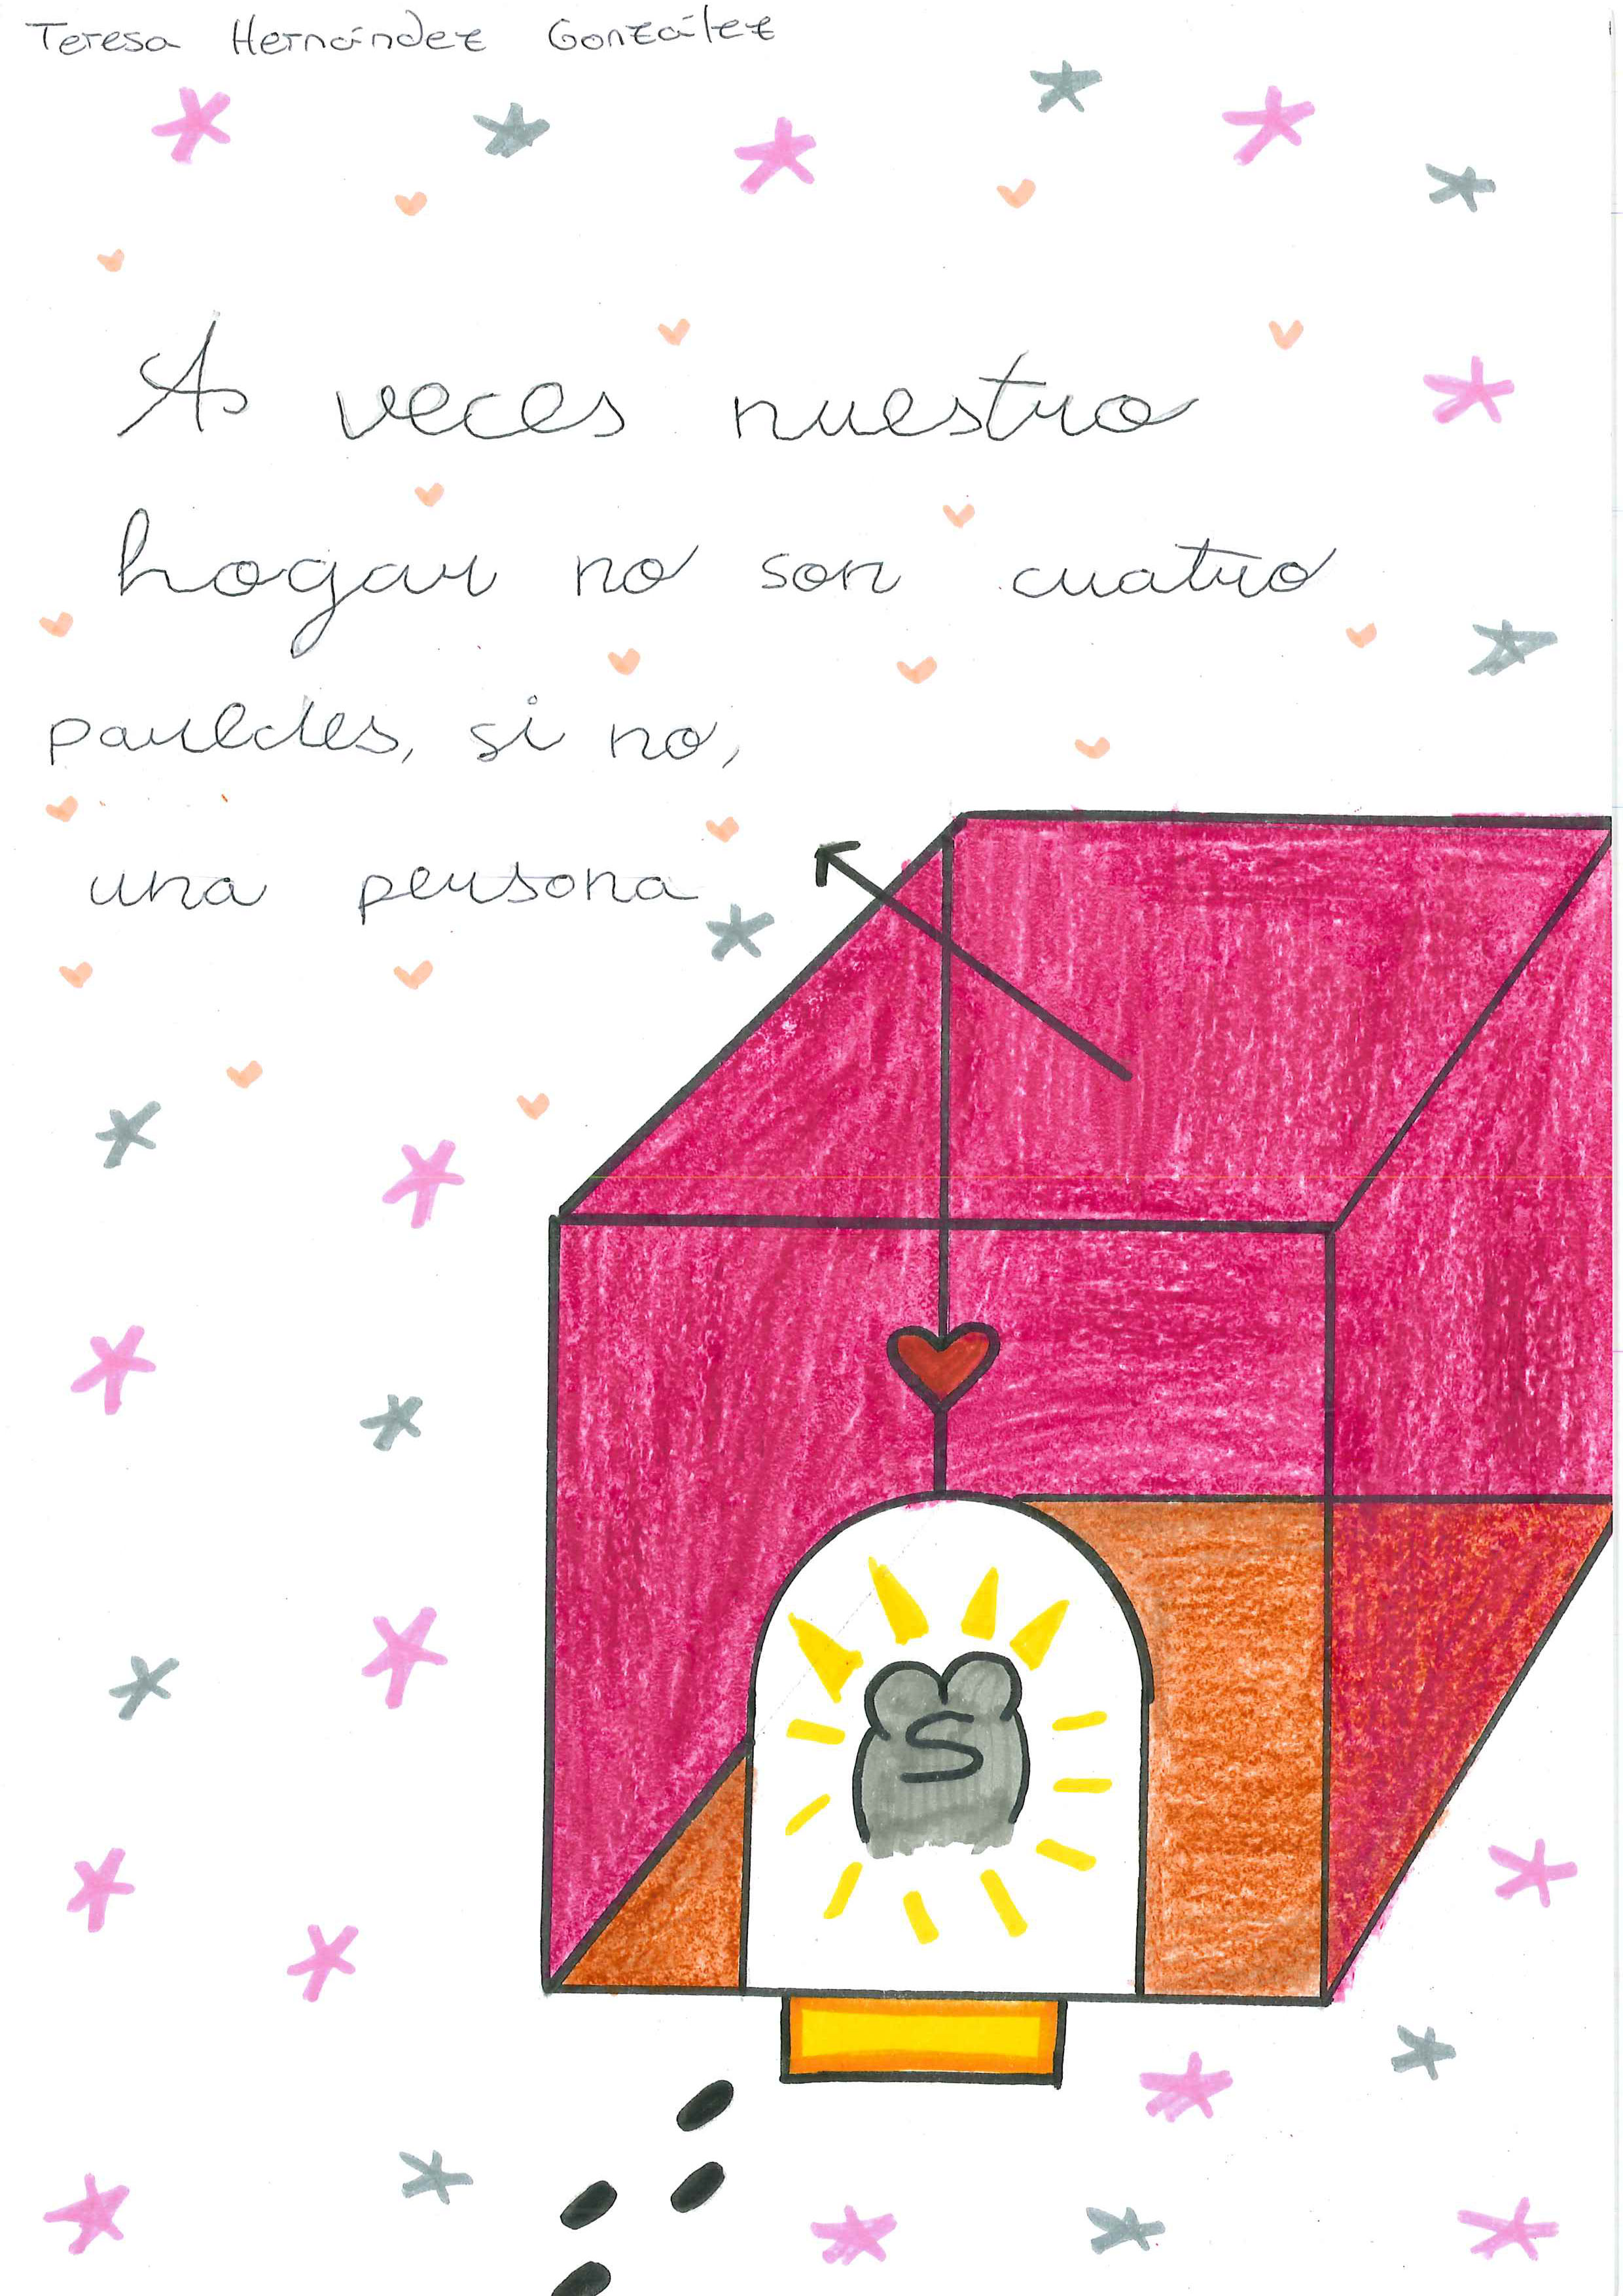 Teresa Hernández González
A veces nuestro
hogar no son cuatro
paredes, si no,
una persona
S